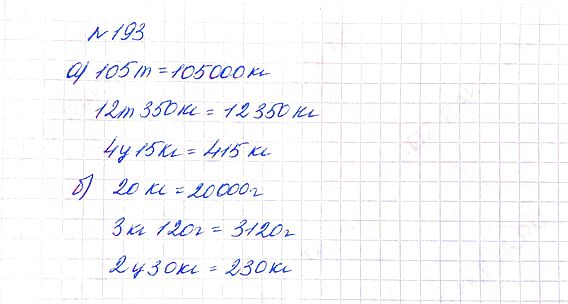 №193
а) 105т = 105000кг
12т 350кг = 12350кг
4ц 15кг = 415 кг
б) 20 кг = 20000г
3кг 120г = 3120г
2ц 30кг = 230кг